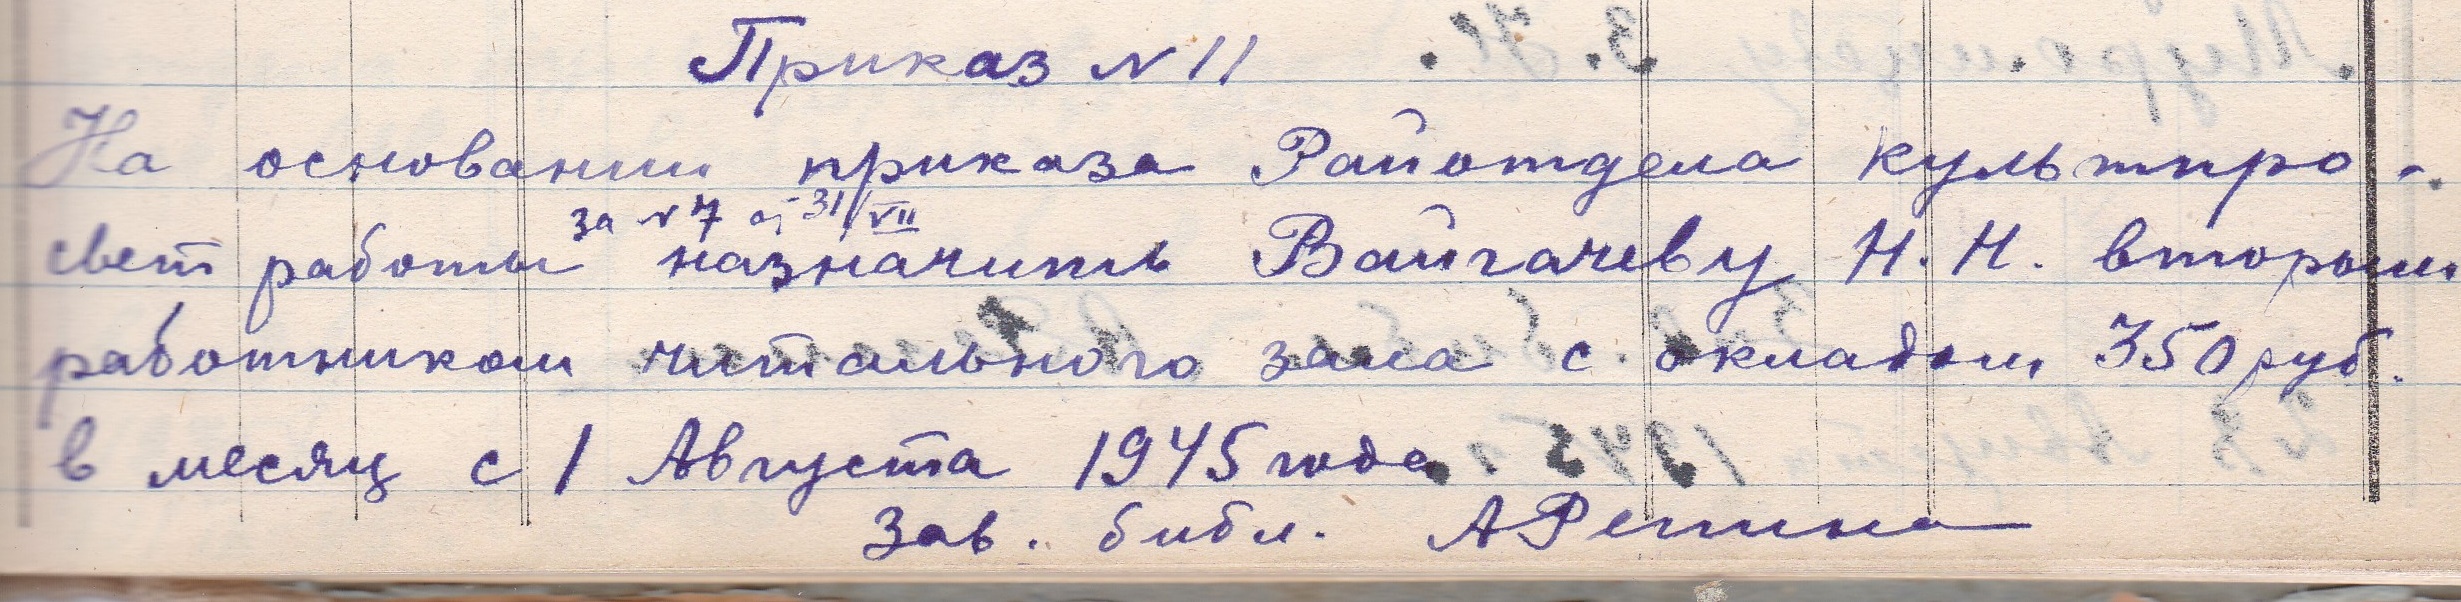 Приказ № 11
На основании приказа Райотдела культпро-
за № 7 от 31/VII
свет работы назначить Вайгачеву Н. Н. вторым
работником читального зала с окладом 350 руб.
в месяц с 1 Августа 1945 года.
Зав. библ. АРепина